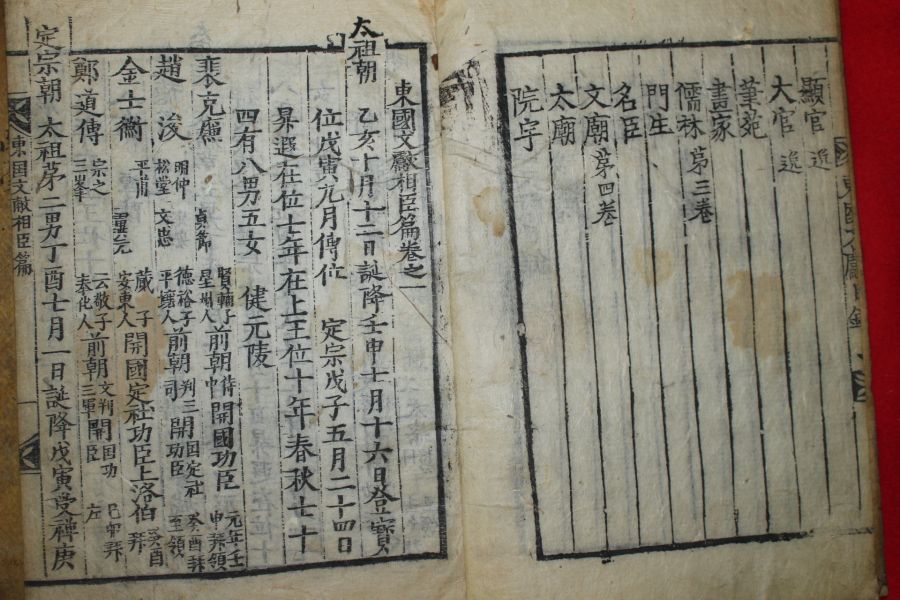 顯官
大官
筆苑
書家
儒林 第三卷
門生
名臣
文廟 第四卷
太廟
院宇
東國文獻相臣篇卷之一
太祖朝 乙亥十月十二日誕降壬申七月十六日登寶
位戊寅九月傳位 定宗戊子五月二十四日
昇遐在位七年在上王位十年春秋七十
四有八男五女 健元陵
裵克廉 貞節 賢輔子 星州人 前朝侍中 開國功臣 元年壬申拜領
趙浚 明仲 松堂 文忠 德裕子 平壤人 前朝判三司 開國定社功臣 癸酉拜至領
金士衡 平甫 翼元 蕆子 安東人 開國定社功臣上洛伯 癸酉拜
鄭道傳 宗之 三峯 云敬子 奉化人 前朝 開國功臣 己卯拜左
定宗朝 太祖第二男丁酉七月一日誕降戊寅受禪庚
東国文献相臣篇